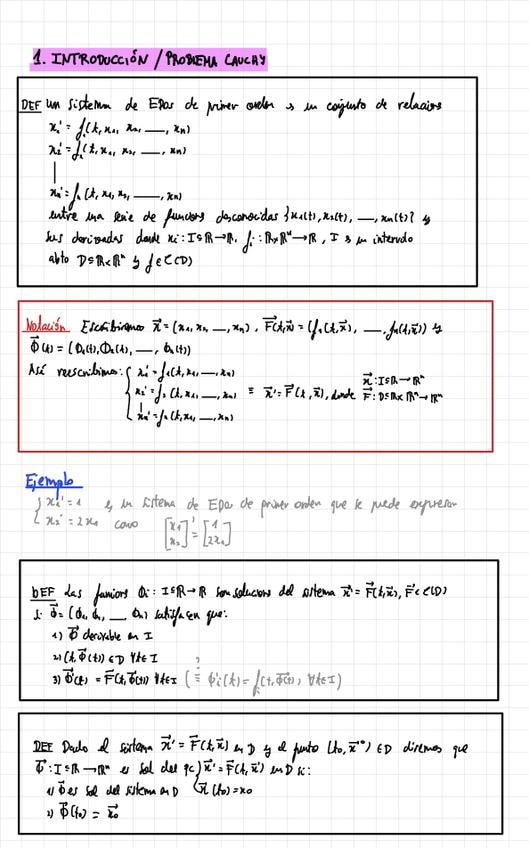 1. INTRODUCCIÓN / PROBLEMA CAUCHY
DEF un sistema de EDOs de primer orden es un conjunto de relaciones
x₁' = f₁(t, x₁, x₂, __, xₙ)
x₂' = f₂(t, x₁, x₂, __, xₙ)
|
xₙ' = fₙ(t, x₁, x₂, __, xₙ)
entre una serie de funciones desconocidas {x₁(t), x₂(t), __, xₙ(t)} y
sus derivadas donde xᵢ: I⊆ℝ→ℝ, fᵢ: ℝxℝⁿ→ℝ, I es un intervalo
abto D⊆ℝxℝⁿ y f∈C(D)
Notación Escribiremos x⃗ = (x₁, x₂, __, xₙ), F⃗(t,x⃗) = (f₁(t,x⃗), __, fₙ(t,x⃗)) y
Φ⃗(t) = (Φ₁(t), Φ₂(t), __, Φₙ(t))
Así reescribimos: { x₁' = f₁(t, x₁, __, xₙ)
x₂' = f₂(t, x₁, __, xₙ) ≡ x⃗' = F⃗(t, x⃗), donde x⃗: I⊆ℝ→ℝⁿ F⃗: D⊆ℝxℝⁿ→ℝⁿ
|
xₙ' = fₙ(t, x₁, __, xₙ)
Ejemplo
{ x₁' = 1 es un sistema de EDOs de primer orden que se puede expresar
x₂' = 2x₁ como [x₁ x₂]' = [1 2x₁]
DEF Las funciones Φᵢ: I⊆ℝ→ℝ son soluciones del sistema x⃗' = F⃗(t,x⃗), F∈C(D)
si Φ⃗ = (Φ₁, Φ₂, __, Φₙ) satisfacen que:
1) Φ⃗ derivable en I
2) (t, Φ⃗(t)) ∈D ∀t∈I
3) Φ⃗'(t) = F⃗(t, Φ⃗(t)) ∀t∈I (≡ Φᵢ'(t) = fᵢ(t, Φ⃗(t)), ∀t∈I)
DEF Dado el sistema x⃗' = F⃗(t,x⃗) en D y el punto (t₀, x⃗⁰) ∈D diremos que
Φ⃗: I⊆ℝ→ℝⁿ es sol del PC { x⃗' = F⃗(t,x⃗) en D si:
1) Φ⃗ es sol del sistema en D x⃗(t₀) = x₀
2) Φ⃗(t₀) = x⃗₀